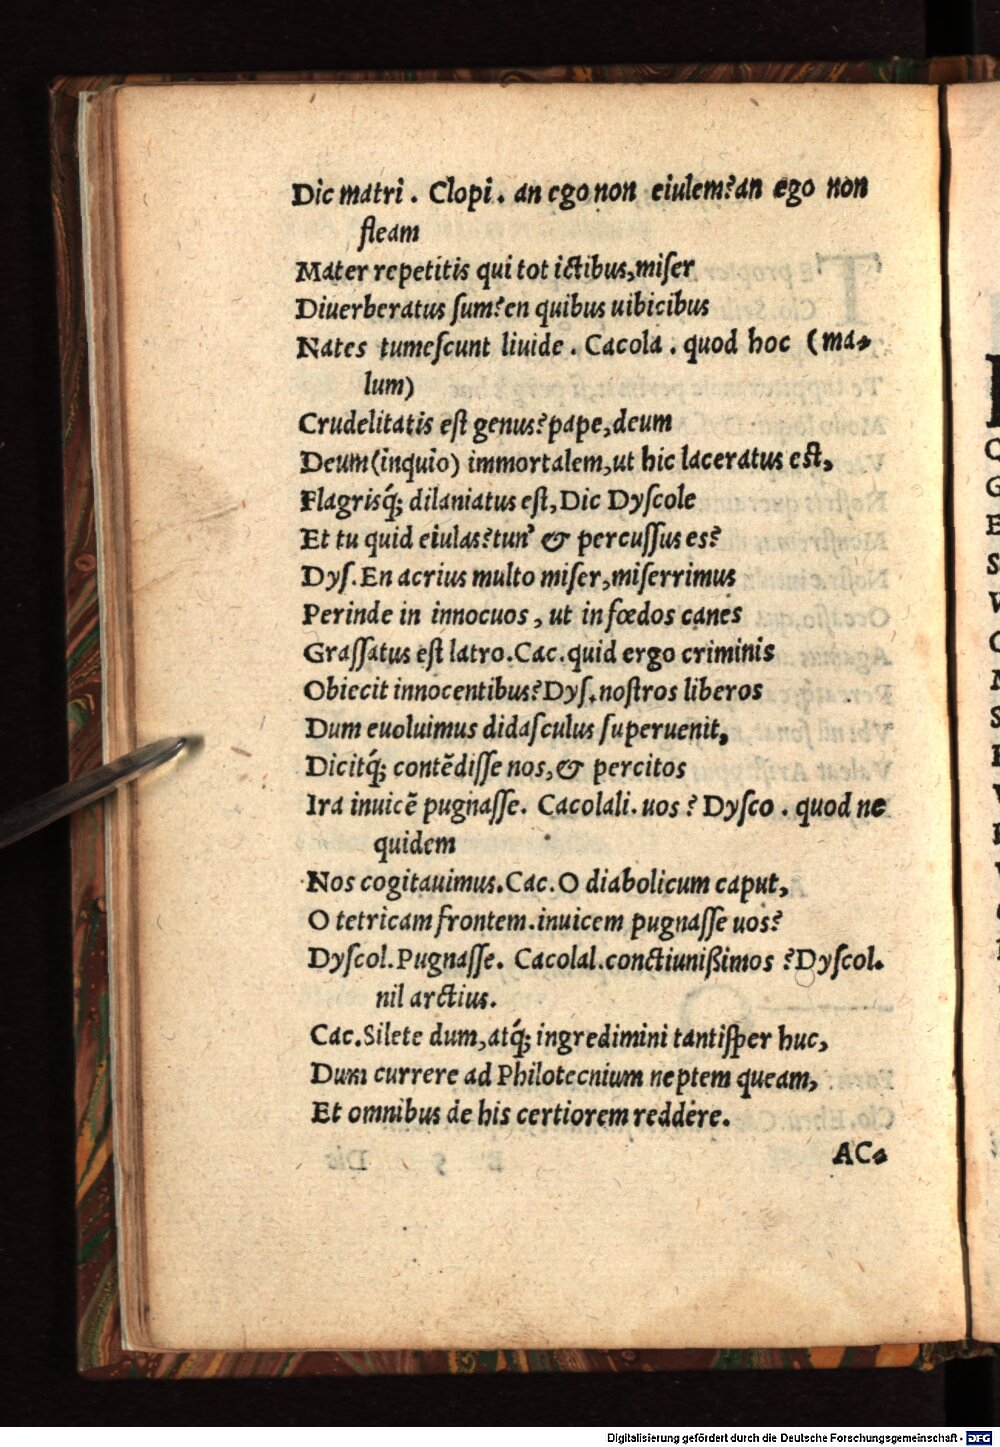 Dic matri. Clopi. an ego non eiulem? an ego non
fleam
Mater repetitis qui tot ictibus, miſer
Diuerberatus ſum? en quibus uibicibus
Nates tumeſcunt liuide. Cacola. quod hoc (ma-
lum)
Crudelitatis eſt genus? pape, deum
Deum (inquio) immortalem, ut hic laceratus eſt,
Flagrisq́; dilaniatus eſt, Dic Dyſcole
Et tu quid eiulas? tun' & percuſſus es?
Dyſ. En acrius multo miſer, miſerrimus
Perinde in innocuos, ut in fœdos canes
Graſſatus eſt latro. Cac. quid ergo criminis
Obiecit innocentibus? Dyſ. noſtros liberos
Dum euoluimus didaſculus ſuperuenit,
Dicitq́; contēdiſſe nos, & percitos
Ira inuicē pugnaſſe. Cacolali. uos? Dyſco. quod ne
quidem
Nos cogitauimus. Cac. O diabolicum caput,
O tetricam frontem. inuicem pugnaſſe uos?
Dyſcol. Pugnaſſe. Cacolal. conctiunißimos? Dyſcol.
nil arctius.
Cac. Silete dum, atq́; ingredimini tantiſper huc,
Dum currere ad Philotecnium neptem queam,
Et omnibus de his certiorem reddere.
AC-
Digitalisierung gefördert durch die Deutsche Forschungsgemeinschaft - DFG